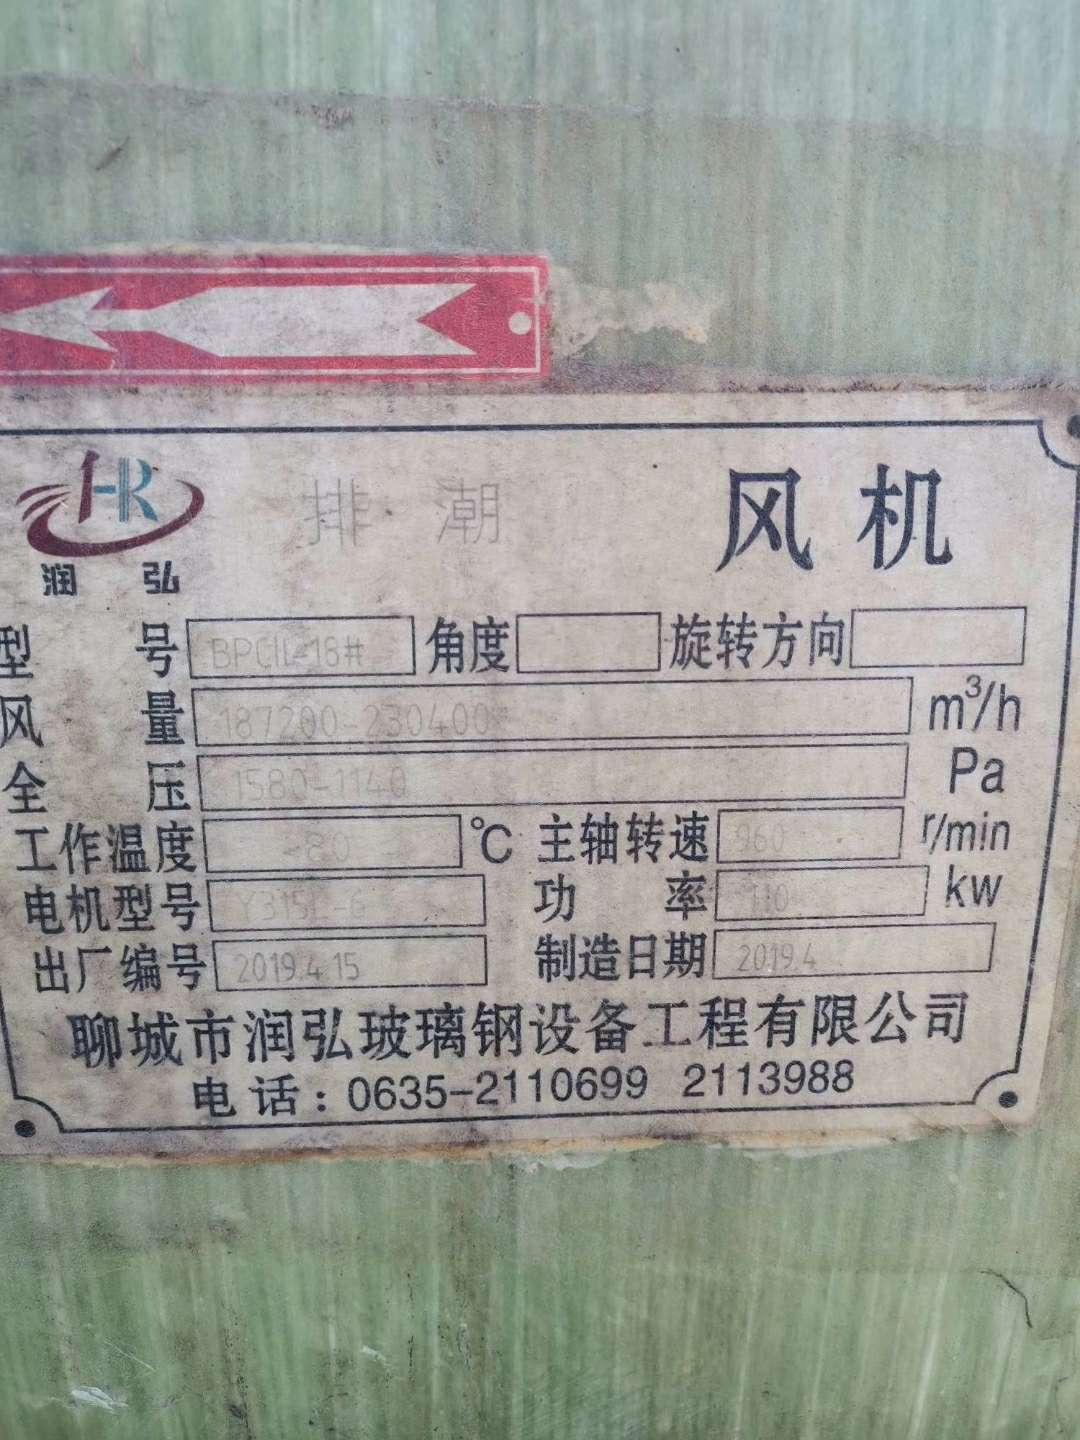 HR
润弘
排潮风机
型号 角度 旋转方向
风量 187200-230400 m³/h
全压 1580-1140 Pa
工作温度 80 ℃ 主轴转速 960 r/min
电机型号 功率 110 kw
出厂编号 2019.4.15 制造日期 2019.4
聊城市润弘玻璃钢设备工程有限公司
电话：0635-2110699 2113988